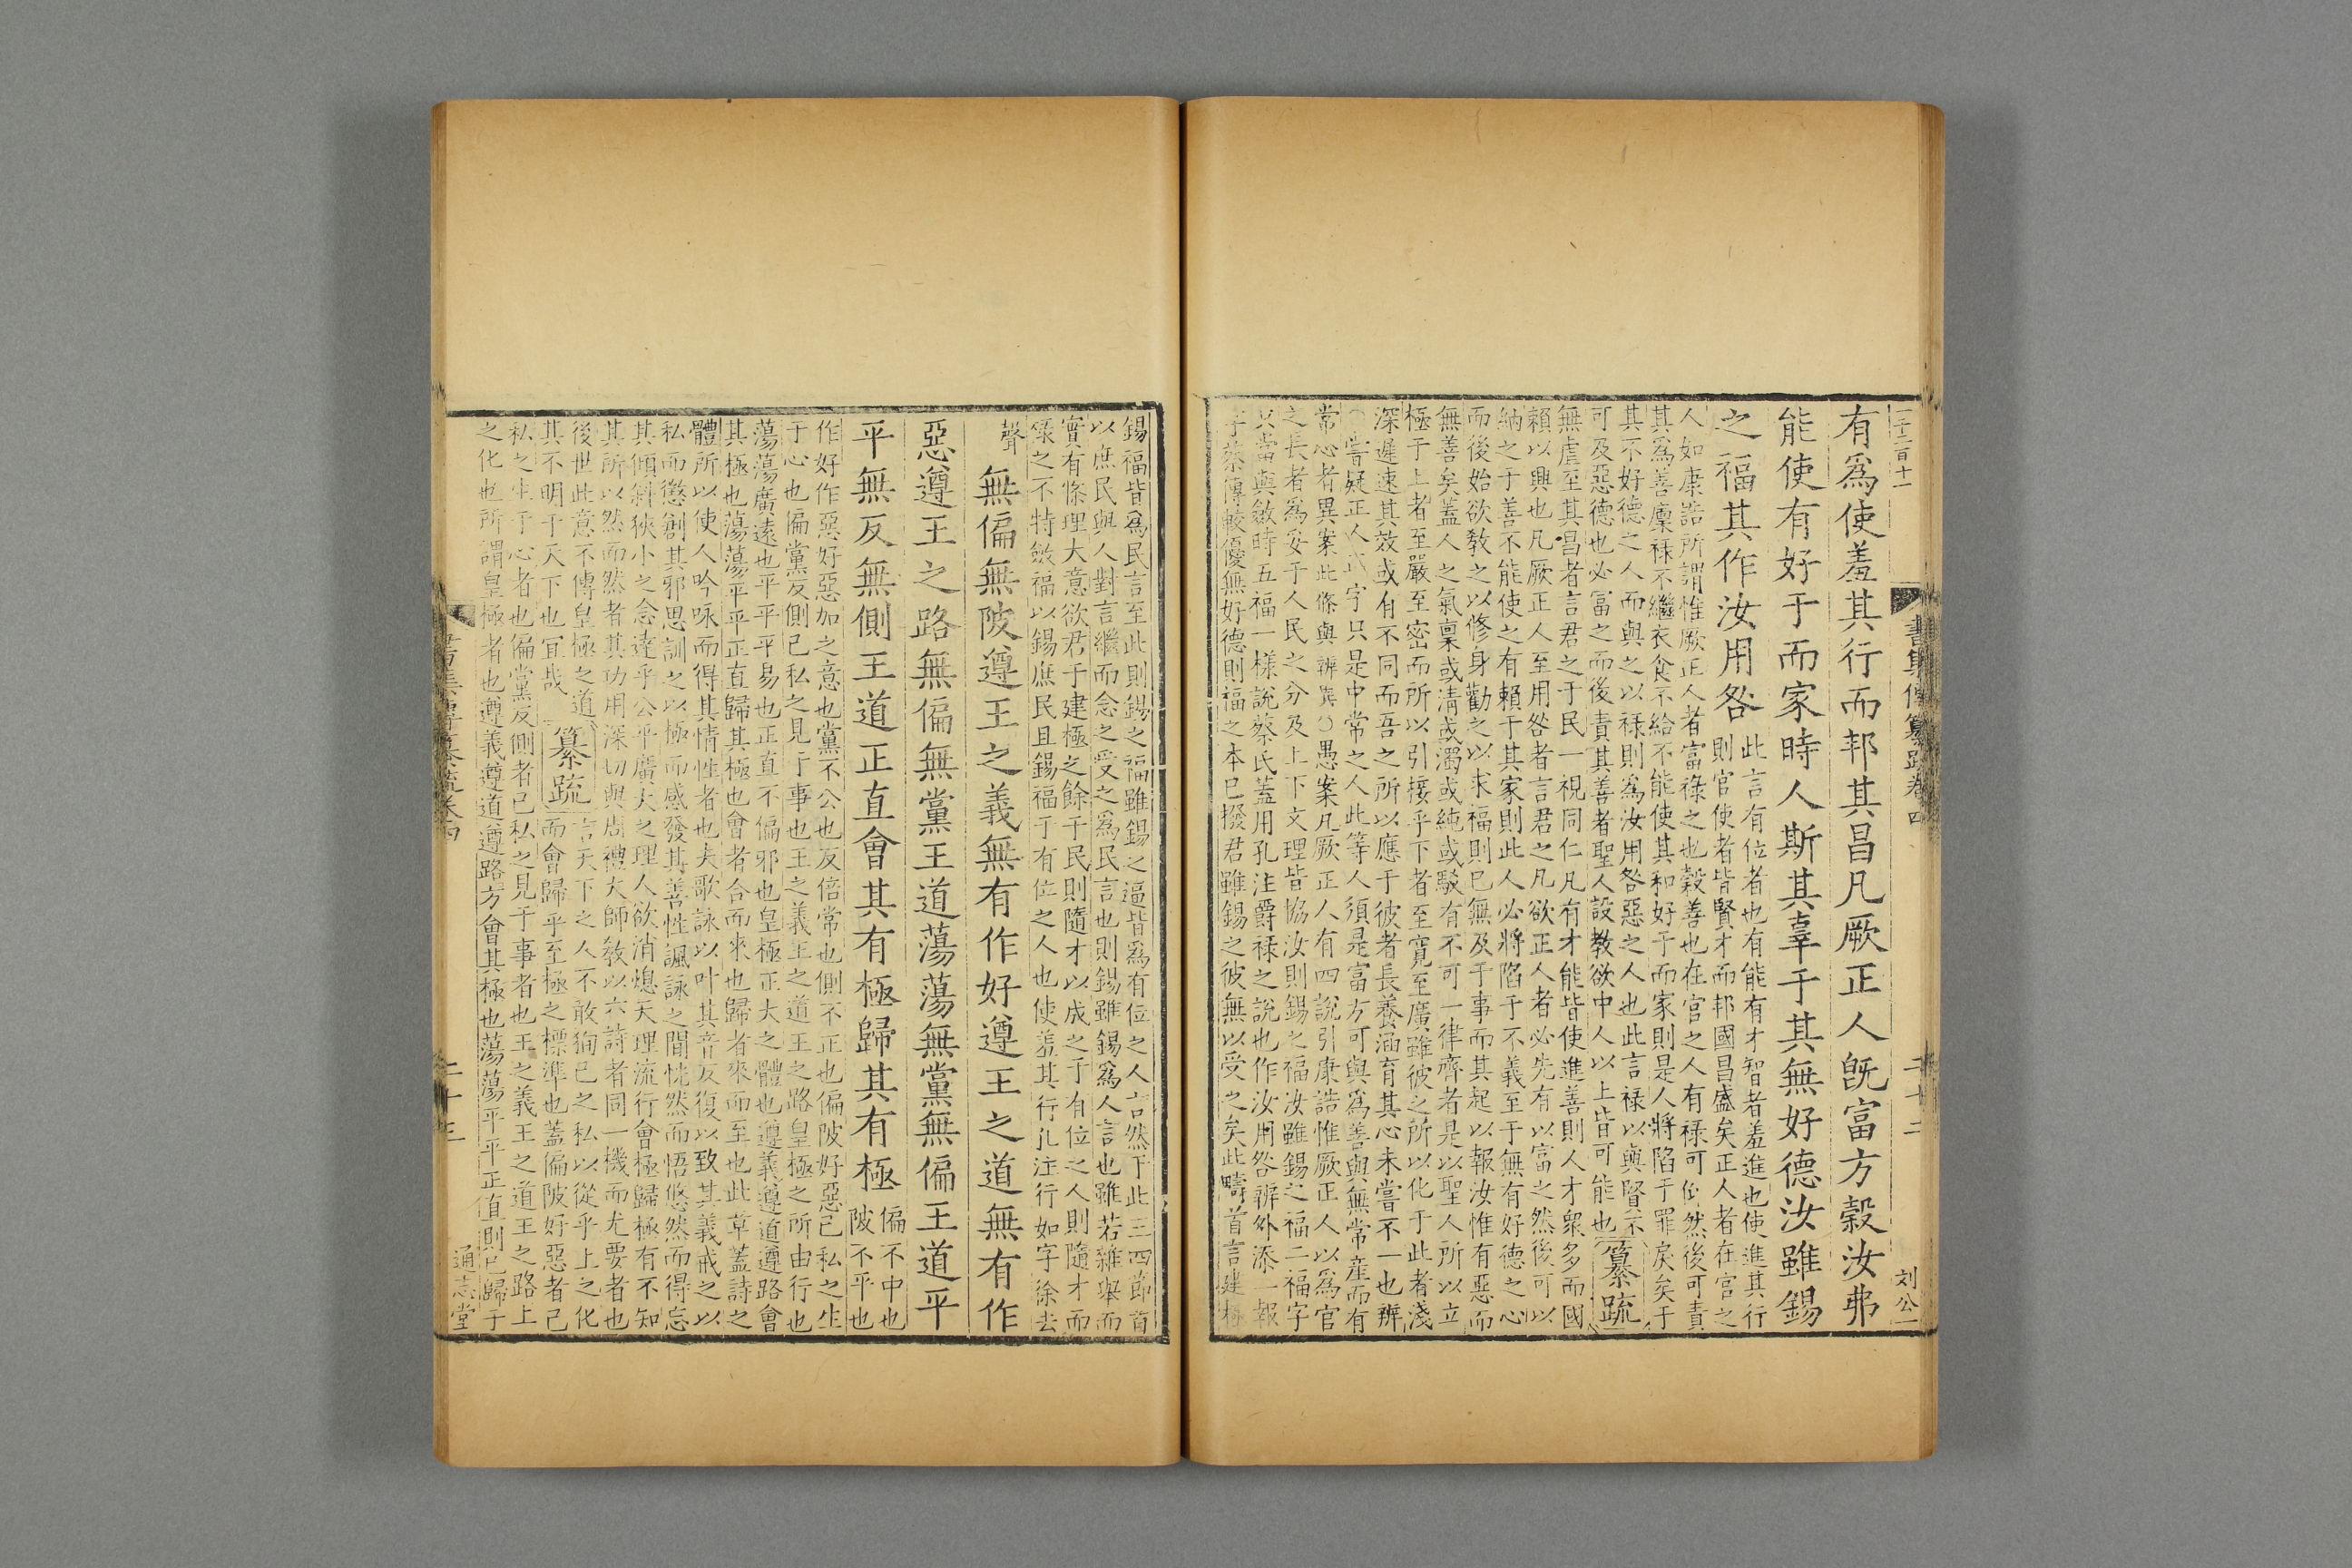 有爲使羞其行而邦其昌凡厥正人旣富方穀汝弗
能使有好于而家時人斯其辜于其無好德汝雖錫
之福其作汝用咎
此言有位者也有能有才智者羞進也使進其行
則官使者皆賢才而邦國昌盛矣正人者在官之
人如康誥所謂惟厥正人者富祿之也穀善也在官之人有祿可仰然後可責
其爲善廩祿不繼衣食不給不能使其和好于而家則是人將陷于罪戾矣于
其不好德之人而與之以祿則爲汝用咎惡之人也此言祿以與賢不
可及惡德也必富之而後責其善者聖人設教欲中人以上皆可能也
纂疏
無虐至其昌者言君之于民一視同仁凡有才能皆使進善則人才衆多而國
賴以興也凡厥正人至用咎者言君之凡欲正人者必先有以富之然後可以
納之于善不能使之有賴于其家則此人必將陷于不義至于無有好德之心
而後始欲教之以修身勸之以求福則已無及于事而其起以報汝惟有惡而
無善矣蓋人之氣稟或淸或濁或純或駁有不可一律齊者是以聖人所以立
極于上者至嚴至密而所以引接乎下者至寬至廣雖彼之所以化于此者淺
深遲速其效或有不同而吾之所以應于彼者長養涵育其心未嘗不一也辨
○嘗疑正人正字只是中常之人此等人須是富方可與爲善與無常產而有
常心者異案此條與辨異○愚案凡厥正人有四說引康誥惟厥正人以爲官
之長者爲妥于人民之分及上下文理皆協汝則錫之福汝雖錫之福二福字
只當與斂時五福一樣說蔡氏蓋用孔注爵祿之說也作汝用咎辨外添一報
字蔡傳較優無好德則福之本已撥君雖錫之彼無以受之矣此疇首言建極
二千三百十一
書集傳纂疏卷四
二十二
刘公一
錫福皆爲民言至此則錫之福雖錫之逼皆爲有位之人言然于此三四節首
以庶民與人對言繼而念之受之爲民言也則錫雖錫爲人言也雖若雜舉而
實有條理大意欲君于建極之餘于民則隨才以成之于有位之人則隨才而
祿之不特斂福以錫庶民且錫福于有位之人也使羞其行孔注行如字徐去
聲
無偏無陂遵王之義無有作好遵王之道無有作
惡遵王之路無偏無黨王道蕩蕩無黨無偏王道平
平無反無側王道正直會其有極歸其有極
偏不中也
陂不平也
作好作惡好惡加之意也黨不公也反倍常也側不正也偏陂好惡已私之生
于心也偏黨反側已私之見于事也王之義王之道王之路皇極之所由行也
蕩蕩廣遠也平平平易也正直不偏邪也皇極正大之體也遵義遵道遵路會
其極也蕩蕩平平正直歸其極也會者合而來也歸者來而至也此章蓋詩之
體所以使人吟咏而得其情性者也夫歌詠以叶其音反復以致其義戒之以
私而懲創其邪思訓之以極而感發其善性諷詠之間恍然而悟悠然而得忘
其傾斜狹小之念達乎公平廣大之理人欲消熄天理流行會極歸極有不知
其所以然而然者其功用深切與周禮大師教以六詩者同一機而尤要者也
後世此意不傳皇極之道
其不明于天下也宜哉
纂疏
言天下之人不敢狥已之私以從乎上之化
而會歸乎至極之標準也蓋偏陂好惡者已
私之生于心者也偏黨反側者已私之見于事者也王之義王之道王之路上
之化也所謂皇極者也遵義遵道遵路方會其極也蕩蕩平平正直則已歸于
書集傳纂疏卷四
二十三
通志堂